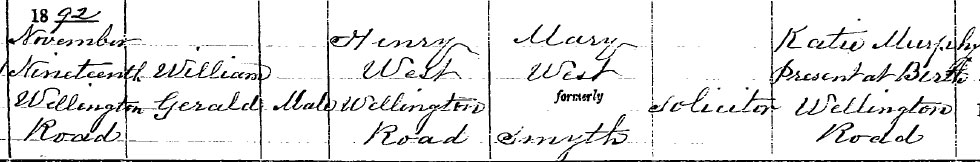 1892
November Henry Mary Katie Murphy
Nineteenth William West West Present at Birth
Wellington Gerald Male Wellington formerly Solicitor Wellington
Road Road Smyth Road